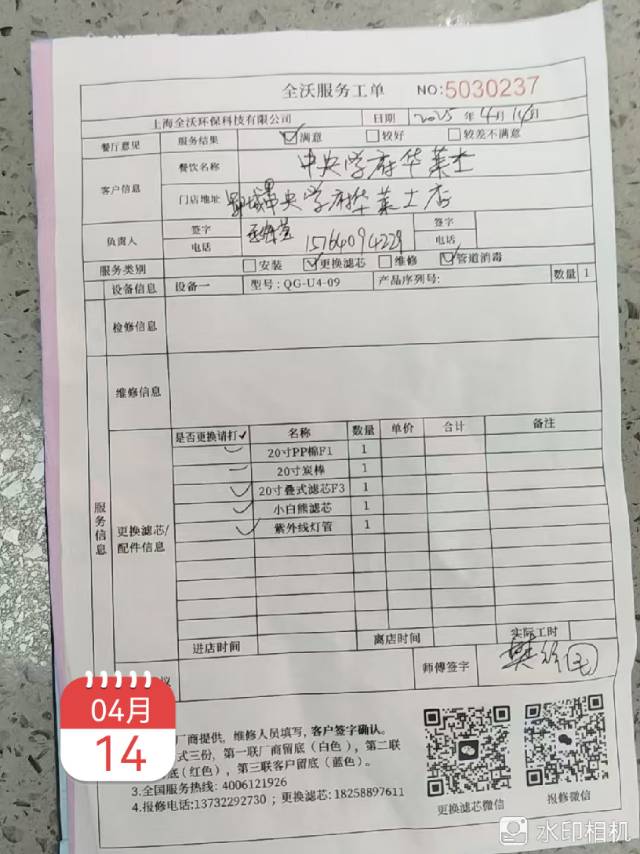 全沃服务工单 NO:5030237
上海全沃环保科技有限公司 日期 2025年4月14日
餐厅意见 服务结果 ☑满意 □较好 □较差不满意
客户信息 餐饮名称 中央学府华莱士
门店地址 郓城中央学府华莱士店
负责人 签字 签字
电话 15764094229 电话
服务类别 □安装 ☑更换滤芯 □维修 ☑管道消毒
设备信息 设备一 型号:QG-U4-09 产品序列号: 数量 1
检修信息
维修信息
服务信息
更换滤芯/配件信息
是否更换请打✓ 名称 数量 单价 合计 备注
✓ 20寸PP棉F1 1
✓ 20寸炭棒 1
✓ 20寸叠式滤芯F3 1
✓ 小白熊滤芯 1
✓ 紫外线灯管 1
进店时间 离店时间 实际工时
议 师傅签字
厂商提供,维修人员填写,客户签字确认。
式三份,第一联厂商留底(白色),第二联
底(红色),第三联客户留底(蓝色)。
3.全国服务热线:4006121926
4.报修电话:13732292730;更换滤芯:18258897611
更换滤芯微信 报修微信
04月
14
水印相机